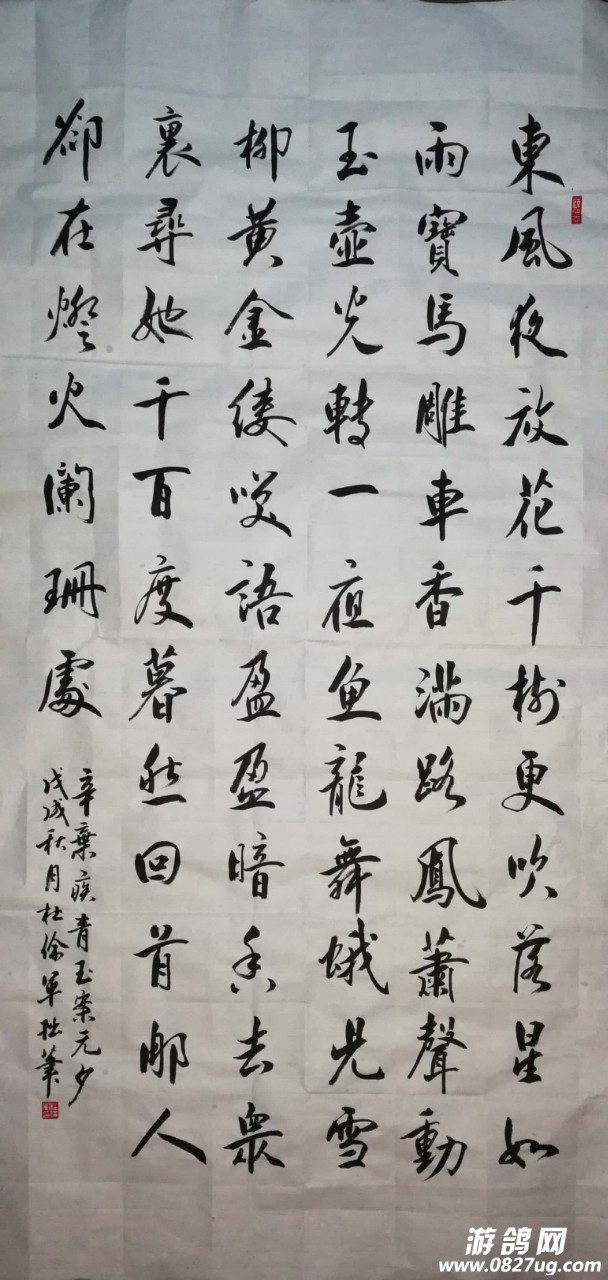 東風夜放花千樹更吹落星如
雨寶馬雕車香滿路鳳蕭聲動
玉壺光轉一夜魚龍舞蛾兒雪
柳黃金縷咲語盈盈暗香去眾
裏尋她千百度暮然回首那人
卻在燈火瀾珊處
辛棄疾青玉案元夕
戊戌秋月杜軍拙筆
游鸽网
www.0827ug.com